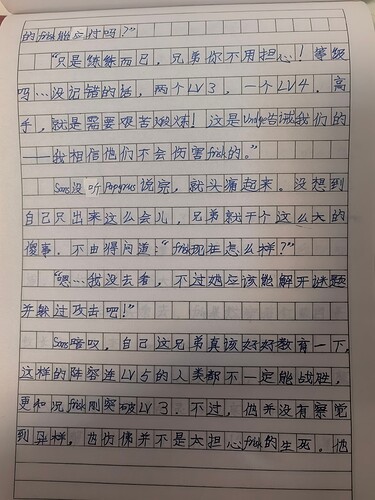 的frisk能应付吗？”
“只是练练而已，兄弟你不用担心！等级
吗…没记错的话，两个LV3，一个LV4，高
手，就是需要艰苦锻炼！这是Undyne告诫我们的
——我相信他们不会伤害frisk的。”
Sans没听Papyrus说完，就头痛起来。没想到
自己只出来这么会儿，兄弟就干个这么大的
傻事。不由得问道：“frisk现在怎么样？”
“嗯…我没去看，不过她应该能解开谜题
并躲过攻击吧！”
Sans暗叹，自己这兄弟真该好好教育一下，
这样的阵容连LV5的人类都不一定能战胜，
更和况frisk刚突破LV3。不过，他并没有察觉
到异样，他仿佛并不是太担心frisk的生死。他